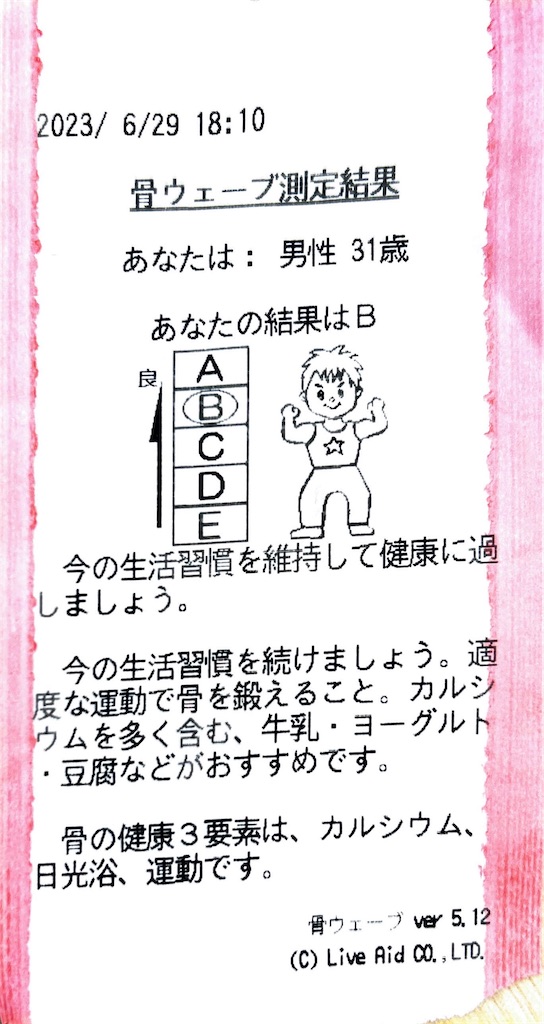 2023/ 6/29 18:10
骨ウェーブ測定結果
あなたは： 男性 31歳
あなたの結果はＢ
良
A
B
C
D
E
今の生活習慣を維持して健康に過
しましょう。
今の生活習慣を続けましょう。適
度な運動で骨を鍛えること。カルシ
ウムを多く含む、牛乳・ヨーグルト
・豆腐などがおすすめです。
骨の健康３要素は、カルシウム、
日光浴、運動です。
骨ウェーブ ver 5.12
(C) Live Aid CO.,LTD.